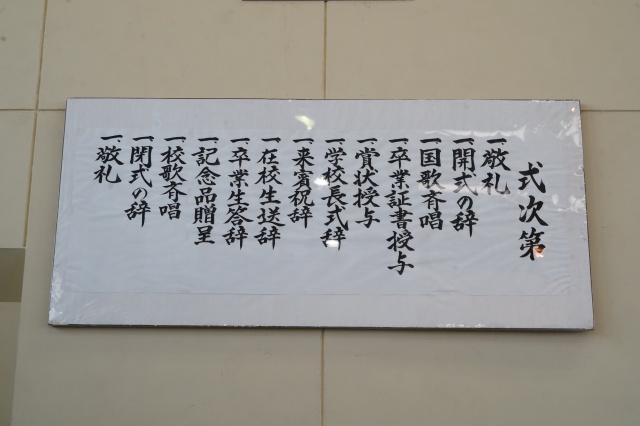 式次第
一、敬礼
一、開式の辞
一、国歌斉唱
一、卒業証書授与
一、賞状授与
一、学校長式辞
一、来賓祝辞
一、在校生送辞
一、卒業生答辞
一、記念品贈呈
一、校歌斉唱
一、閉式の辞
一、敬礼